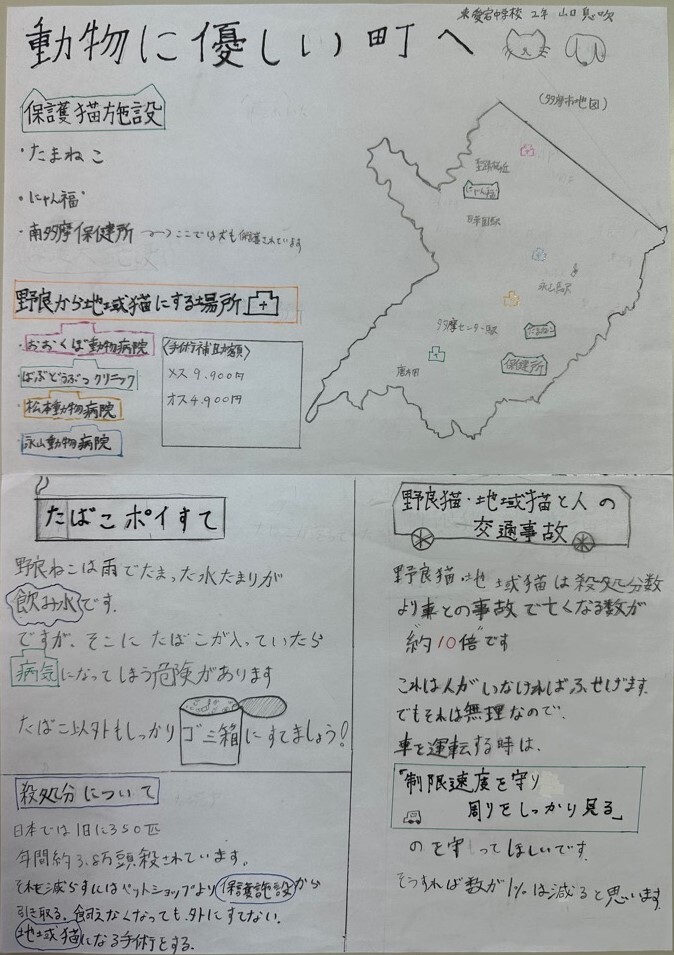 東愛宕中学校 2年 山口
動物に優しい町へ
保護猫施設
・たまねこ
・にゃん福
・南多摩保健所 ～→ ここでは犬も保護されています
(多摩市地図)
聖蹟桜ヶ丘
にゃん福
百草園駅
永山駅
多摩センター駅
たまねこ
保健所
唐木田
野良から地域猫にする場所
・おおくぼ動物病院
・ばぶどうぶつクリニック
・松本動物病院
・永山動物病院
〈手術補助額〉
メス 9.900円
オス 4.900円
たばこポイすて
野良ねこは雨でたまった水たまりが
飲み水です.
ですが、そこに たばこが入っていたら
病気になってしまう危険があります
たばこ以外もしっかりゴミ箱にすてましょう!
殺処分について
日本では1日に350匹
年間約3.8万頭殺されています。
それを減らすにはペットショップより保護施設から
引き取る。飼えなくなっても、外にすてない。
地域猫になる手術をする。
野良猫・地域猫と人の
交通事故
野良猫・地域猫は殺処分数
より車との事故で亡くなる数が
"約10倍"です
これは人がいなければふせげます.
でもそれは無理なので、
車を運転する時は、
「制限速度を守り
周りをしっかり見る」
のを守ってほしいです.
そうすれば数が1%は減ると思います.